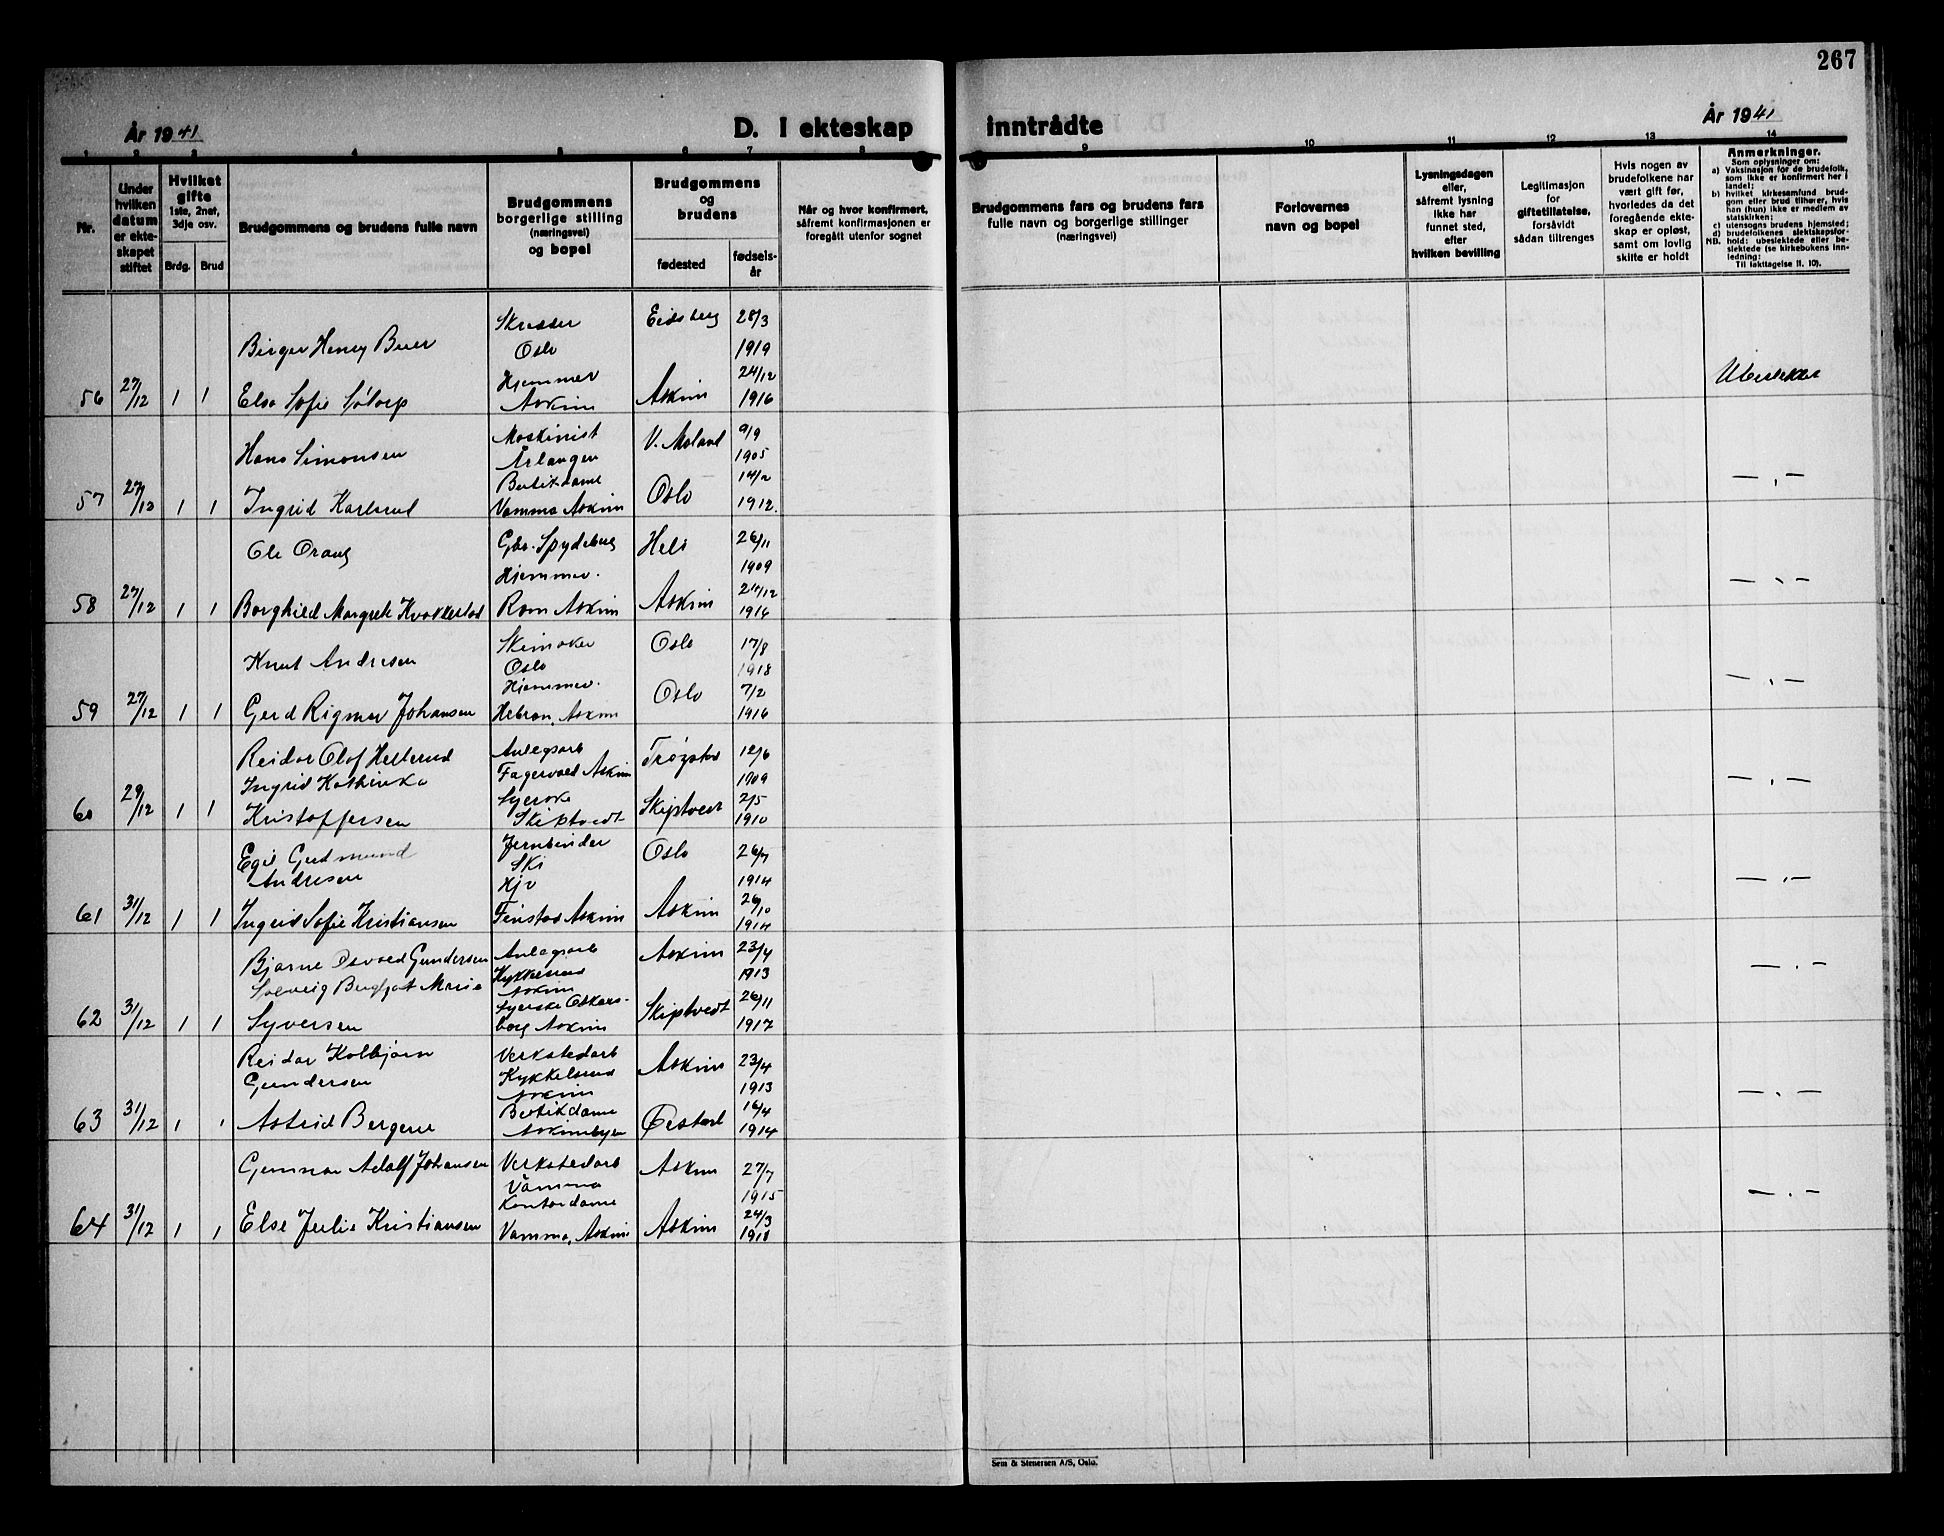 267
År 1941
D. I ekteskap inntrådte
År 1941
1 2 3 4 5 6 7 8 9 10 11 12 13 14
Nr.
Under hvilken datum er ekteskapet stiftet
Hvilket gifte
1ste, 2net, 3dje osv.
Brdg. Brud
Brudgommens og brudens fulle navn
Brudgommens borgerlige stilling (næringsvei) og bopel
Brudgommens og brudens
fødested
fødselsår
Når og hvor konfirmert, såfremt konfirmasjonen er foregått utenfor sognet
Brudgommens fars og brudens fars fulle navn og borgerlige stillinger (næringsvei)
Forlovernes navn og bopel
Lysningsdagen eller, såfremt lysning ikke har funnet sted, efter hvilken bevilling
Legitimasjon for giftetillatelse, forsåvidt sådan tiltrenges
Hvis nogen av brudefolkene har vært gift før, hvorledes da det foregående ekteskap er opløst, samt om lovlig skifte er holdt
Anmerkninger.
Som oplysninger om:
a) Vaksinasjon for de brudefolk, som ikke er konfirmert her i landet;
b) hvilket kirkesamfund brudgom eller brud tilhører, hvis han (hun) ikke er medlem av statskirken;
c) utensogns brudens hjemsted;
d) brudefolkenes slektskapsforhold: ubeslektede eller beslektede (se kirkebokens innledning:
NB.
Til Iakttagelse II. 10).
Birger Henry Buer Skredder Oslo Eidsberg 28/3 1919
56 27/12 1 1 Elsa Sofie Sötorp Hjemmev Askim Askim 24/12 1916
Hans Simonsen Maskinist Ærlangen 9/9 1905
57 27/12 1 1 Ingrid Karlsrud Butikdame Vamma Askim Oslo 14/2 1912. — , —
Ole Oraug Gbr. Spydeberg Heli 26/11 1909
58 27/12 1 1 Borghild Margrete Kvakkestad Hjemmev. Rom Askim Askim 24/12 1916 — , —
Knut Andresen Skomaker Oslo Oslo 17/8 1918
59 27/12 1 1 Gerd Rigmor Johansen Hjemmev. Hebron, Askim Oslo 7/2 1916 — , —
Reidar Olof Hellerud Anlegsarb Fagervold Askim Trøgstad 12/6 1909
60 29/12 1 1 Ingrid Kathinka Kristoffersen Syerske Skiptvedt Skiptvedt 2/5 1910 — , —
Egil Gudmund Andresen Jernbinder Ski Oslo 26/7 1914
61 31/12 1 1 Ingrid Sofie Kristiansen Hjv Finstad Askim Askim 26/10 1914 — , —
Bjarne Osvald Gundersen Anlegsarb Kykkelsrud Askim Askim 23/4 1913
62 31/12 1 1 Solveig Bergljot Marie Syversen Syerske Oskarsborg Askim Skiptvedt 26/11 1917 — , —
Reidar Kolbjørn Gundersen Verkstedarb Kykkelsrud Askim Askim 23/4 1913
63 31/12 1 1 Astrid Bergerud Butikdame Askimbyen 16/4 1914 — , —
Gunnar Adolf Johansen Verkstedarb Vamma Askim 27/7 1915
64 31/12 1 1 Else Julie Kristiansen Kontordame Vamma, Askim Askim 24/3 1918 — , —
Sem & Stenersen A/S, Oslo.